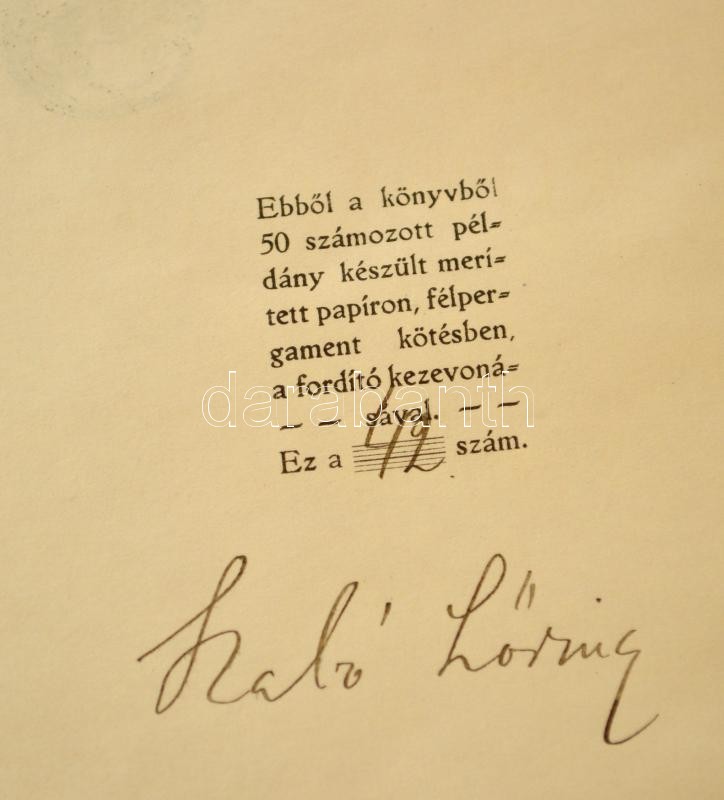 Ebből a könyvből
50 számozott pél=
dány készült merí=
tett papíron, félper=
gament kötésben,
a fordító kezevoná=
– – sával. – –
Ez a 42 szám.
Szabó Lőrinc
darabanth